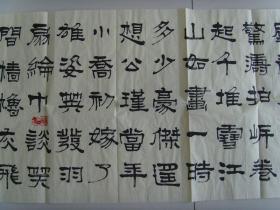 驚濤拍岸卷
起千堆雪江
山如畫一時
多少豪傑遥
想公瑾當年
小喬初嫁了
雄姿英發羽
扇綸巾談笑
間檣櫓灰飛